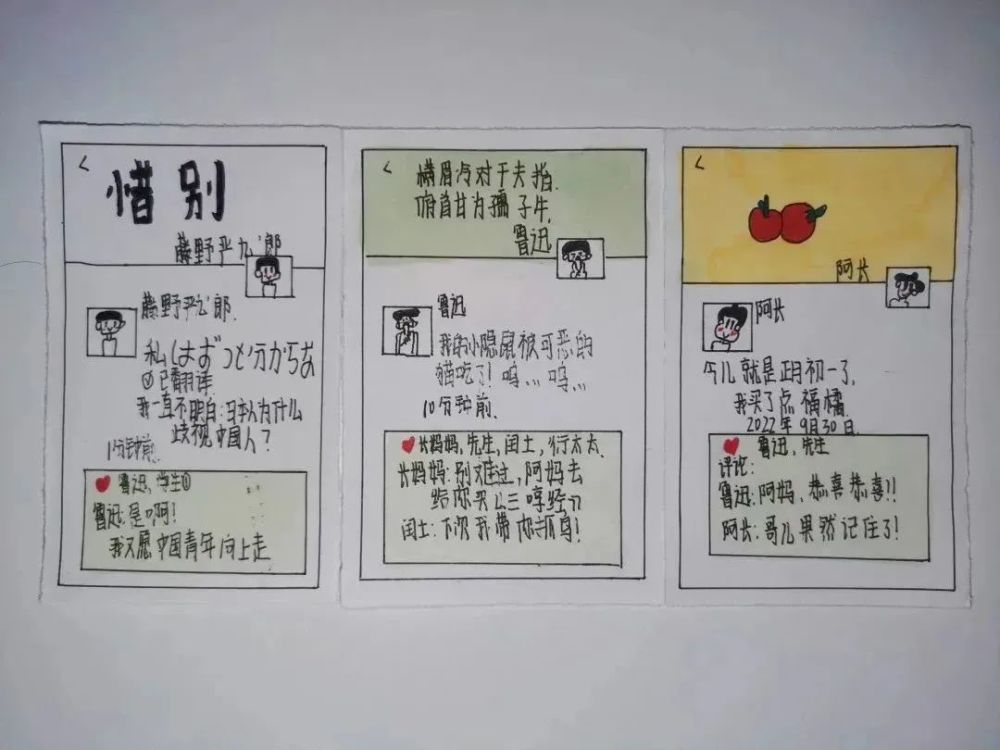 <
惜别
藤野严九郎
藤野严九郎
私はずっと分からな
已翻译
我一直不明白:日本人为什么
歧视中国人?
1分钟前
鲁迅,学生①
鲁迅:是啊!
我只愿中国青年向上走
<
横眉冷对千夫指.
俯首甘为孺子牛.
鲁迅
鲁迅
我的小隐鼠被可恶的
猫吃了!呜...呜...
10分钟前.
长妈妈,先生,闰土,衍太太.
长妈妈:别难过,阿妈去
给你买《三哼经》
闰土:下次我带你抓鸟!
<
阿长
阿长
今儿就是正月初一了,
我买了点福橘.
2022年9月30日.
鲁迅,先生
评论:
鲁迅:阿妈,恭喜恭喜!!
阿长:哥儿果然记住了!